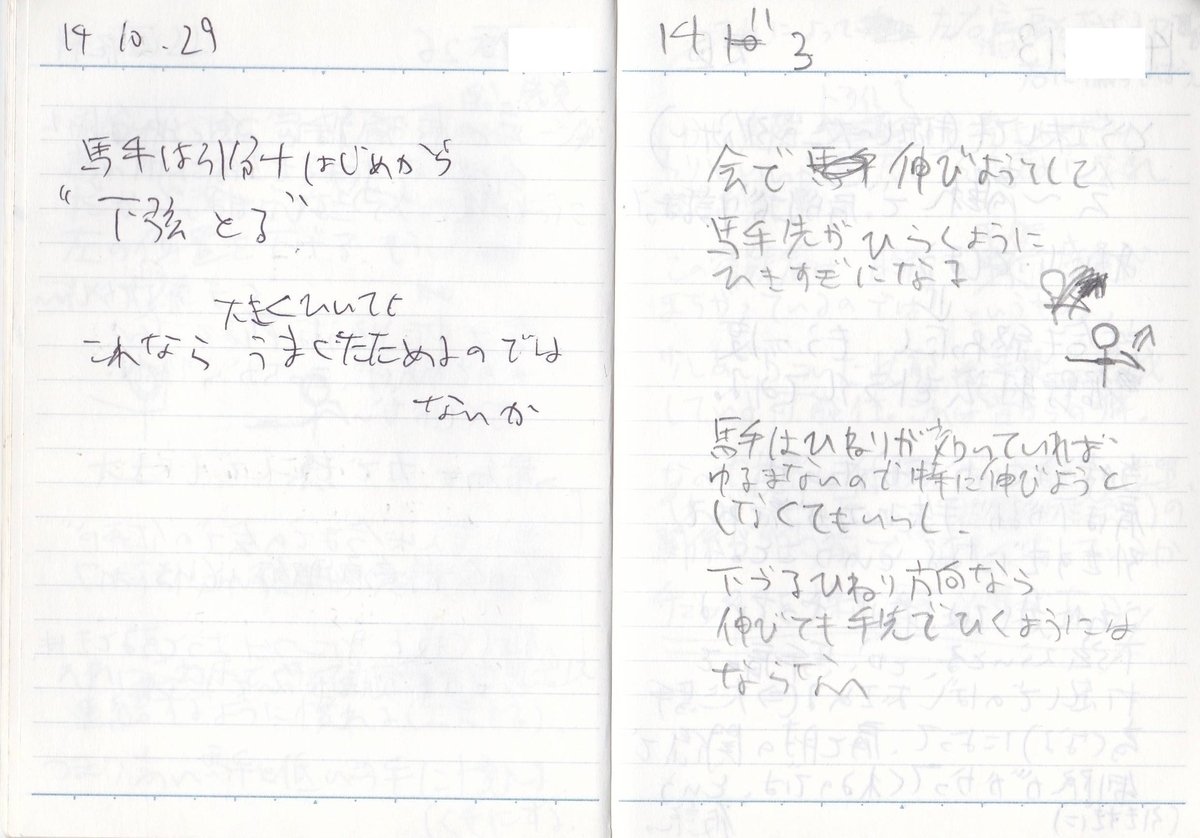 14 10.29
馬手は引分けはじめから
“下弦とる”
大きくひいても
これなら うまくたためるのでは
ないか
14 11 3
会で 伸びようとして
馬手先がひらくように
ひきすぎになる
馬手はひねりが効いていれば
ゆるまないので特に伸びようと
しなくてもいいし、
下づるひねり方向なら
伸びても手先でひくようには
ならない